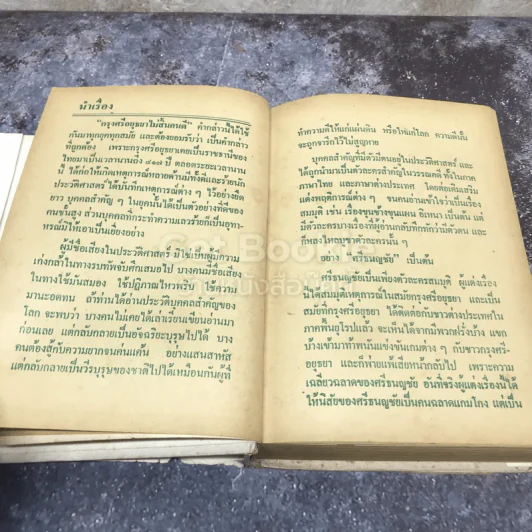 นำเรื่อง
"กรุงศรีอยุธยาไม่สิ้นคนดี" คำกล่าวนี้ได้ใช้
กันมาทุกยุคทุกสมัย และต้องยอมรับว่า เป็นคำกล่าว
ที่ถูกต้อง เพราะกรุงศรีอยุธยาเคยเป็นราชธานีของ
ไทยมาเป็นเวลานานถึง ๔๑๗ ปี ตลอดระยะเวลานาน
นี้ ได้ก่อให้เกิดเหตุการณ์หลายด้านมีทั้งดีและร้ายนัก
ประวัติศาสตร์ ได้บันทึกเหตุการณ์ต่าง ๆ ไว้อย่างยืด
ยาว บุคคลสำคัญ ๆ ในยุคนั้นได้เป็นตัวอย่างที่ดีของ
คนชั้นสูง ส่วนบุคคลที่กระทำความเลวร้ายก็เป็นอุทา-
หรณ์มิให้เอาเป็นเยี่ยงอย่าง
ผู้มีชื่อเสียงในประวัติศาสตร์ มิใช่เป็นผู้มีความ
เก่งกล้าในทางรบทัพจับศึกเสมอไป บางคนมีชื่อเสียง
ในทางใช้มันสมอง ใช้ปฏิภาณไหวพริบ ใช้ความ
มานะอดทน ถ้าท่านได้อ่านประวัติบุคคลสำคัญของ
โลก จะพบว่า บางคนไม่เคยได้เล่าเรียนเขียนอ่านมา
ก่อนเลย แต่กลับกลายเป็นอัจฉริยะบุรุษไปได้ บาง
คนต้องสู้กับความยากจนค่นแค้น อย่างแสนสาหัส
แต่กลับกลายเป็นวีรบุรุษของชาติไปได้เหมือนกันผู้ที่
ทำความดีให้แก่แผ่นดิน หรือให้แก่โลก ความดีนั้น
จะถูกจารึกไว้ไม่สูญหาย
บุคคลสำคัญที่มีตัวมีตนอยู่ในประวัติศาสตร์ และ
ได้ถูกนำมาเป็นตัวละครสำคัญในวรรณคดี ทั้งในภาค
ภาษาไทย และภาษาต่างประเทศ โดยต่อเติมเสริม
แต่งพฤติการณ์ต่าง ๆ จนคนอ่านเข้าใจว่าเป็นเรื่อง
สมมุติ เช่น เรื่องขุนช้างขุนแผน อิเหนา เป็นต้น แต่
มีตัวละครบางเรื่องที่ผู้อ่านกลับทึกทักว่ามีตัวคน และ
ก็หลงใหลบูชาตัวละครนั้น ๆ
อย่าง "ศรีธนญชัย" เป็นต้น
ศรีธนญชัยเป็นเพียงตัวละครสมมุติ ผู้แต่งเรื่อง
นี้ได้สมมุติเหตุการณ์ในสมัยกรุงศรีอยุธยา และเป็น
สมัยที่กรุงศรีอยุธยา ได้ติดต่อกับชาวต่างประเทศใน
ภาคพื้นยุโรปแล้ว จะเห็นได้จากมีพวกฝรั่งบ้าง แขก
บ้างเข้ามาท้าพนันแข่งขันเกมต่าง ๆ กับชาวกรุงศรี-
อยุธยา และก็พ่ายแพ้เสียหน้ากลับไป เพราะความ
เฉลียวฉลาดของศรีธนญชัย อันที่จริงผู้แต่งเรื่องนี้ได้
ให้นิสัยของศรีธนญชัยเป็นคนฉลาดแกมโกง แต่เป็น